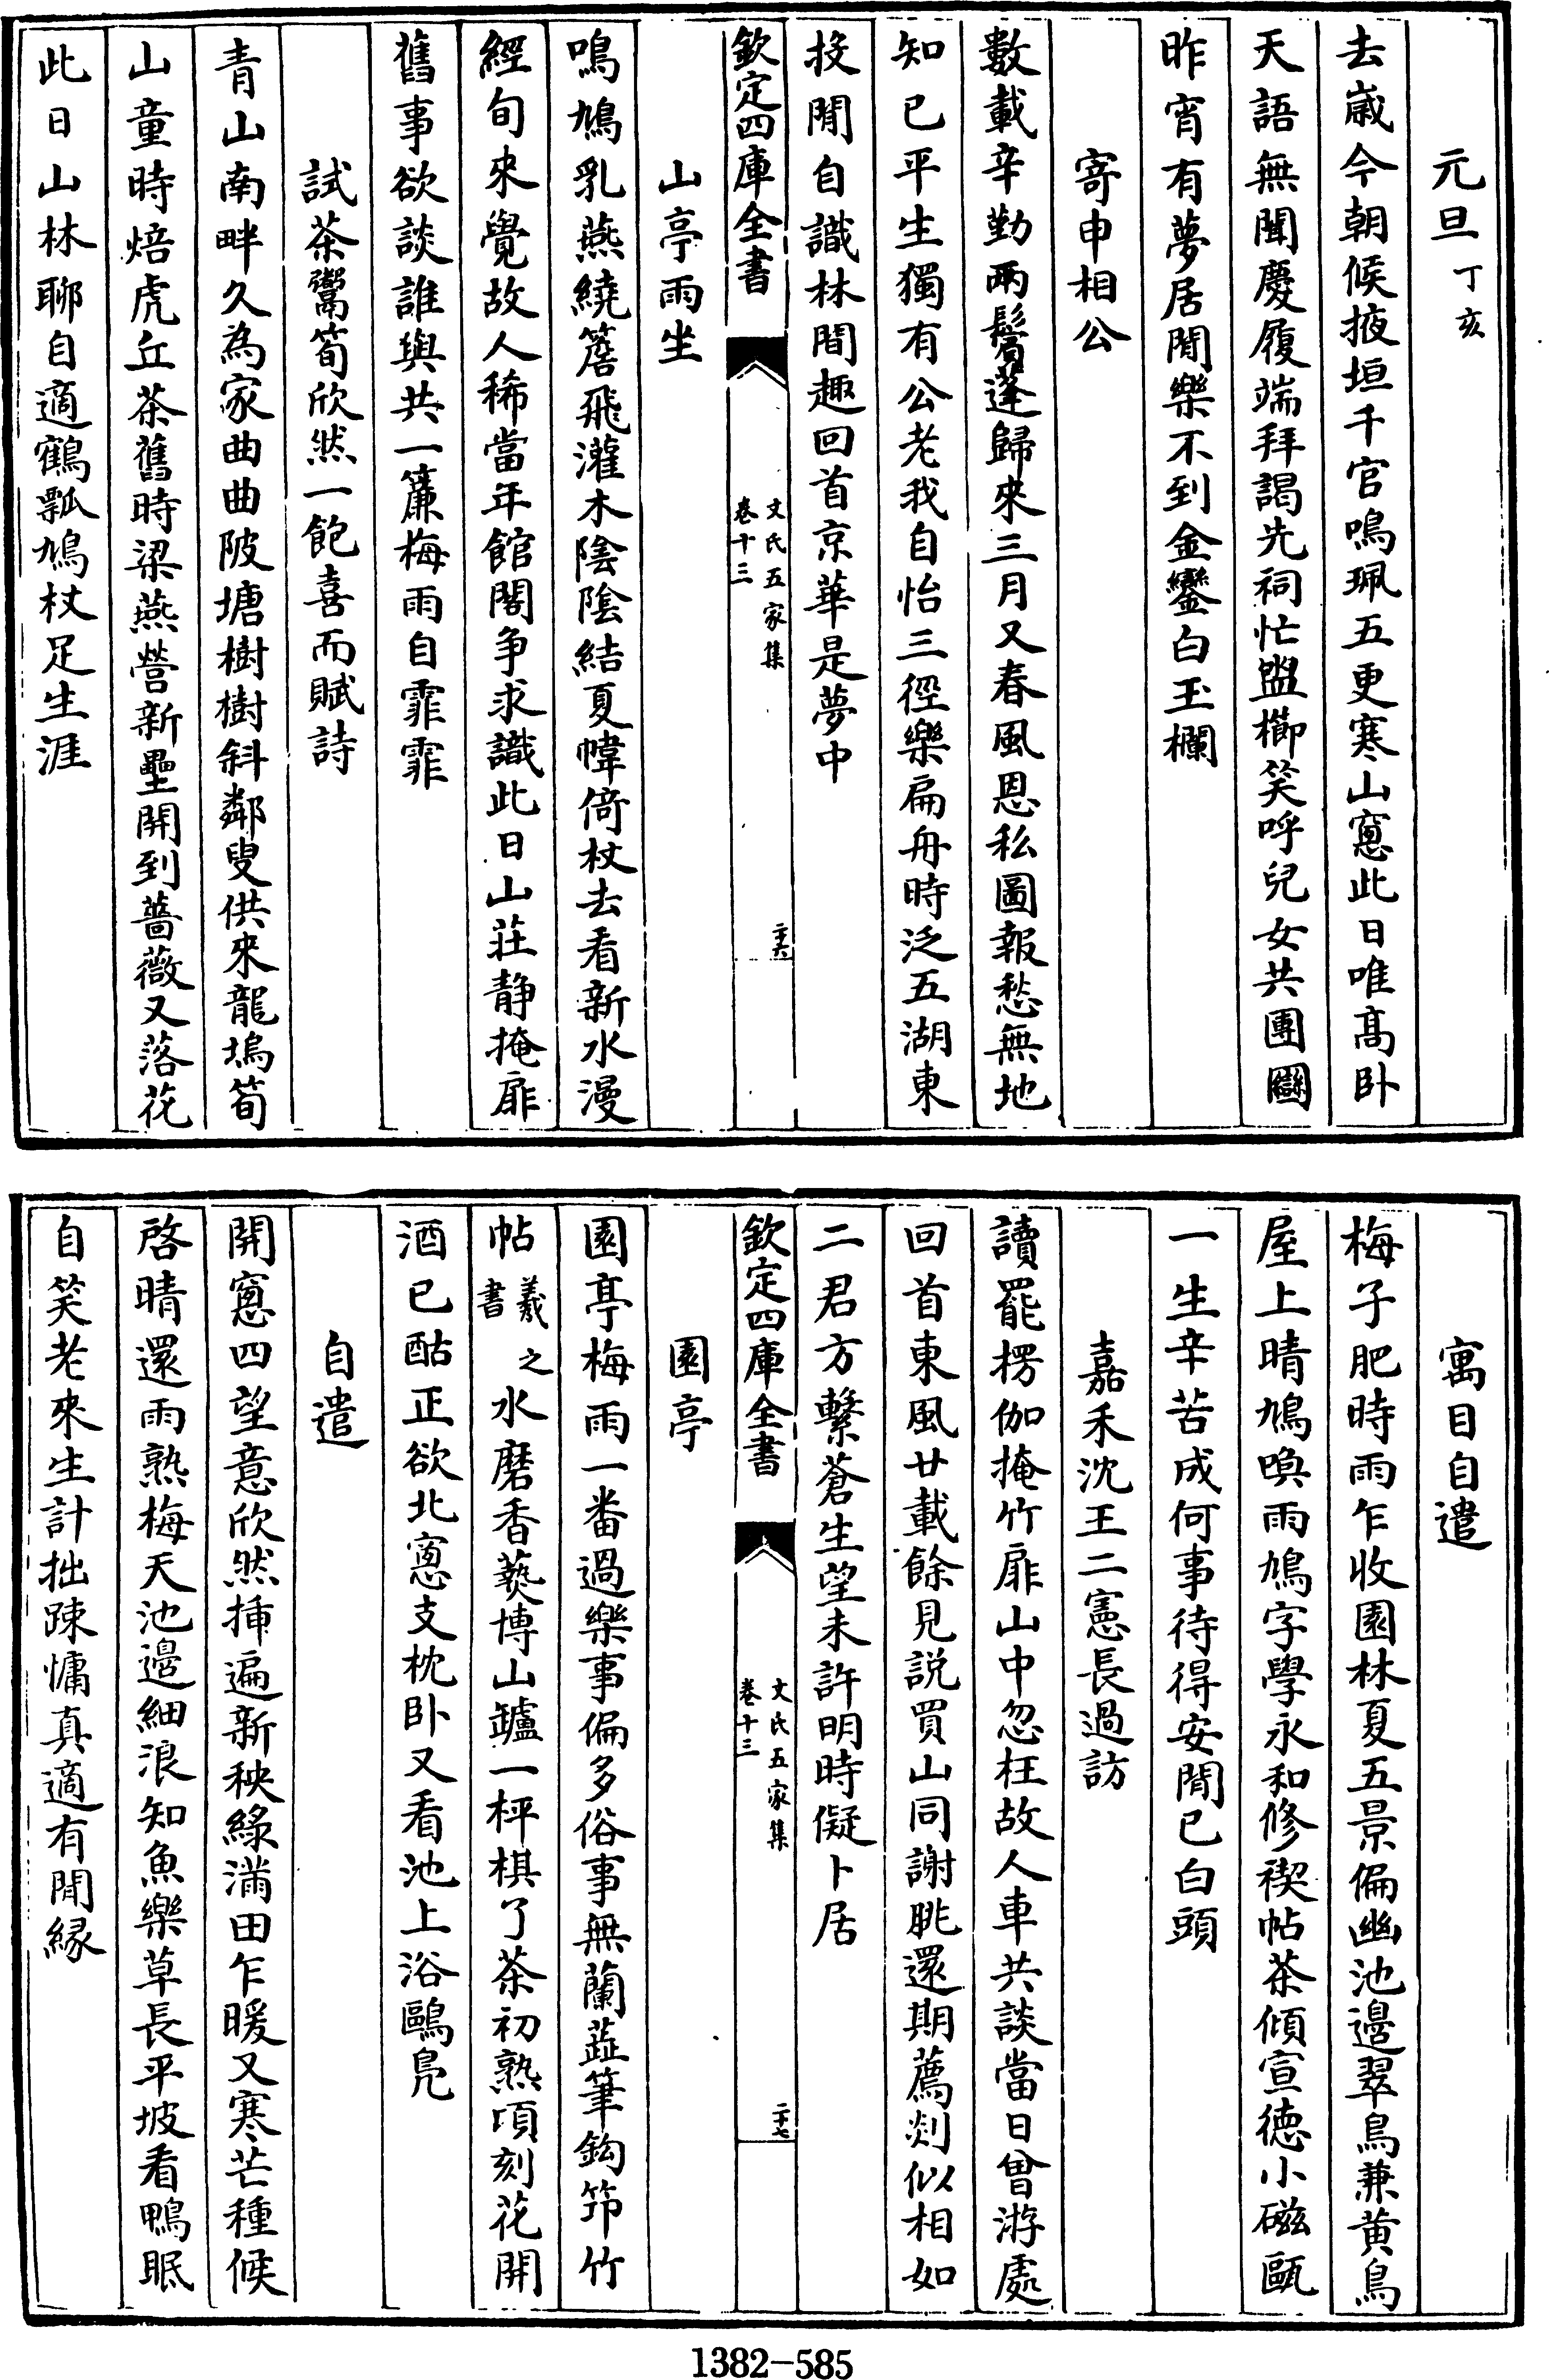 元旦丁亥
去嵗今朝候掖垣千官鳴珮五更寒山窻此日唯髙卧
天語無聞慶履端拜謁先祠忙盥櫛笑呼兒女共團圞
昨宵有夢居閒樂不到金鑾白玉欄
寄申相公
數載辛勤兩鬢蓬歸來三月又春風恩私圖報愁無地
知已平生獨有公老我自怡三徑樂扁舟時泛五湖東
投閒自識林間趣回首京華是夢中
欽定四庫全書
文氏五家集
卷十三
二十六
山亭雨坐
鳴鳩乳燕繞簷飛灌木陰陰結夏幃倚杖去看新水漫
經旬來覺故人稀當年館閣争求識此日山莊靜掩扉
舊事欲談誰與共一簾梅雨自霏霏
試茶鬻筍欣然一飽喜而賦詩
青山南畔久為家曲曲陂塘樹樹斜鄰叟供來龍塢筍
山童時焙虎丘茶舊時梁燕營新壘開到薔薇又落花
此日山林聊自適鶴瓢鳩杖足生涯
寓目自遣
梅子肥時雨乍收園林夏五景偏幽池邊翠鳥兼黄鳥
屋上晴鳩喚雨鳩字學永和修禊帖茶傾宣徳小磁甌
一生辛苦成何事待得安閒已白頭
嘉禾沈王二憲長過訪
讀罷楞伽掩竹扉山中忽枉故人車共談當日曾游處
回首東風廿載餘見説買山同謝朓還期薦剡似相如
二君方繫蒼生望未許明時儗卜居
欽定四庫全書
文氏五家集
卷十三
二十七
園亭
園亭梅雨一番過樂事偏多俗事無蘭蕋筆鈎笻竹
帖羲之書水磨香爇博山鑪一枰棋了茶初熟頃刻花開
酒已酤正欲北窻支枕卧又看池上浴鷗鳬
自遣
開窻四望意欣然揷遍新秧緑滿田乍暖又寒芒種候
啓晴還雨熟梅天池邉細浪知魚樂草長平坡看鴨眠
自笑老來生計拙踈慵真適有閒縁
1382-585